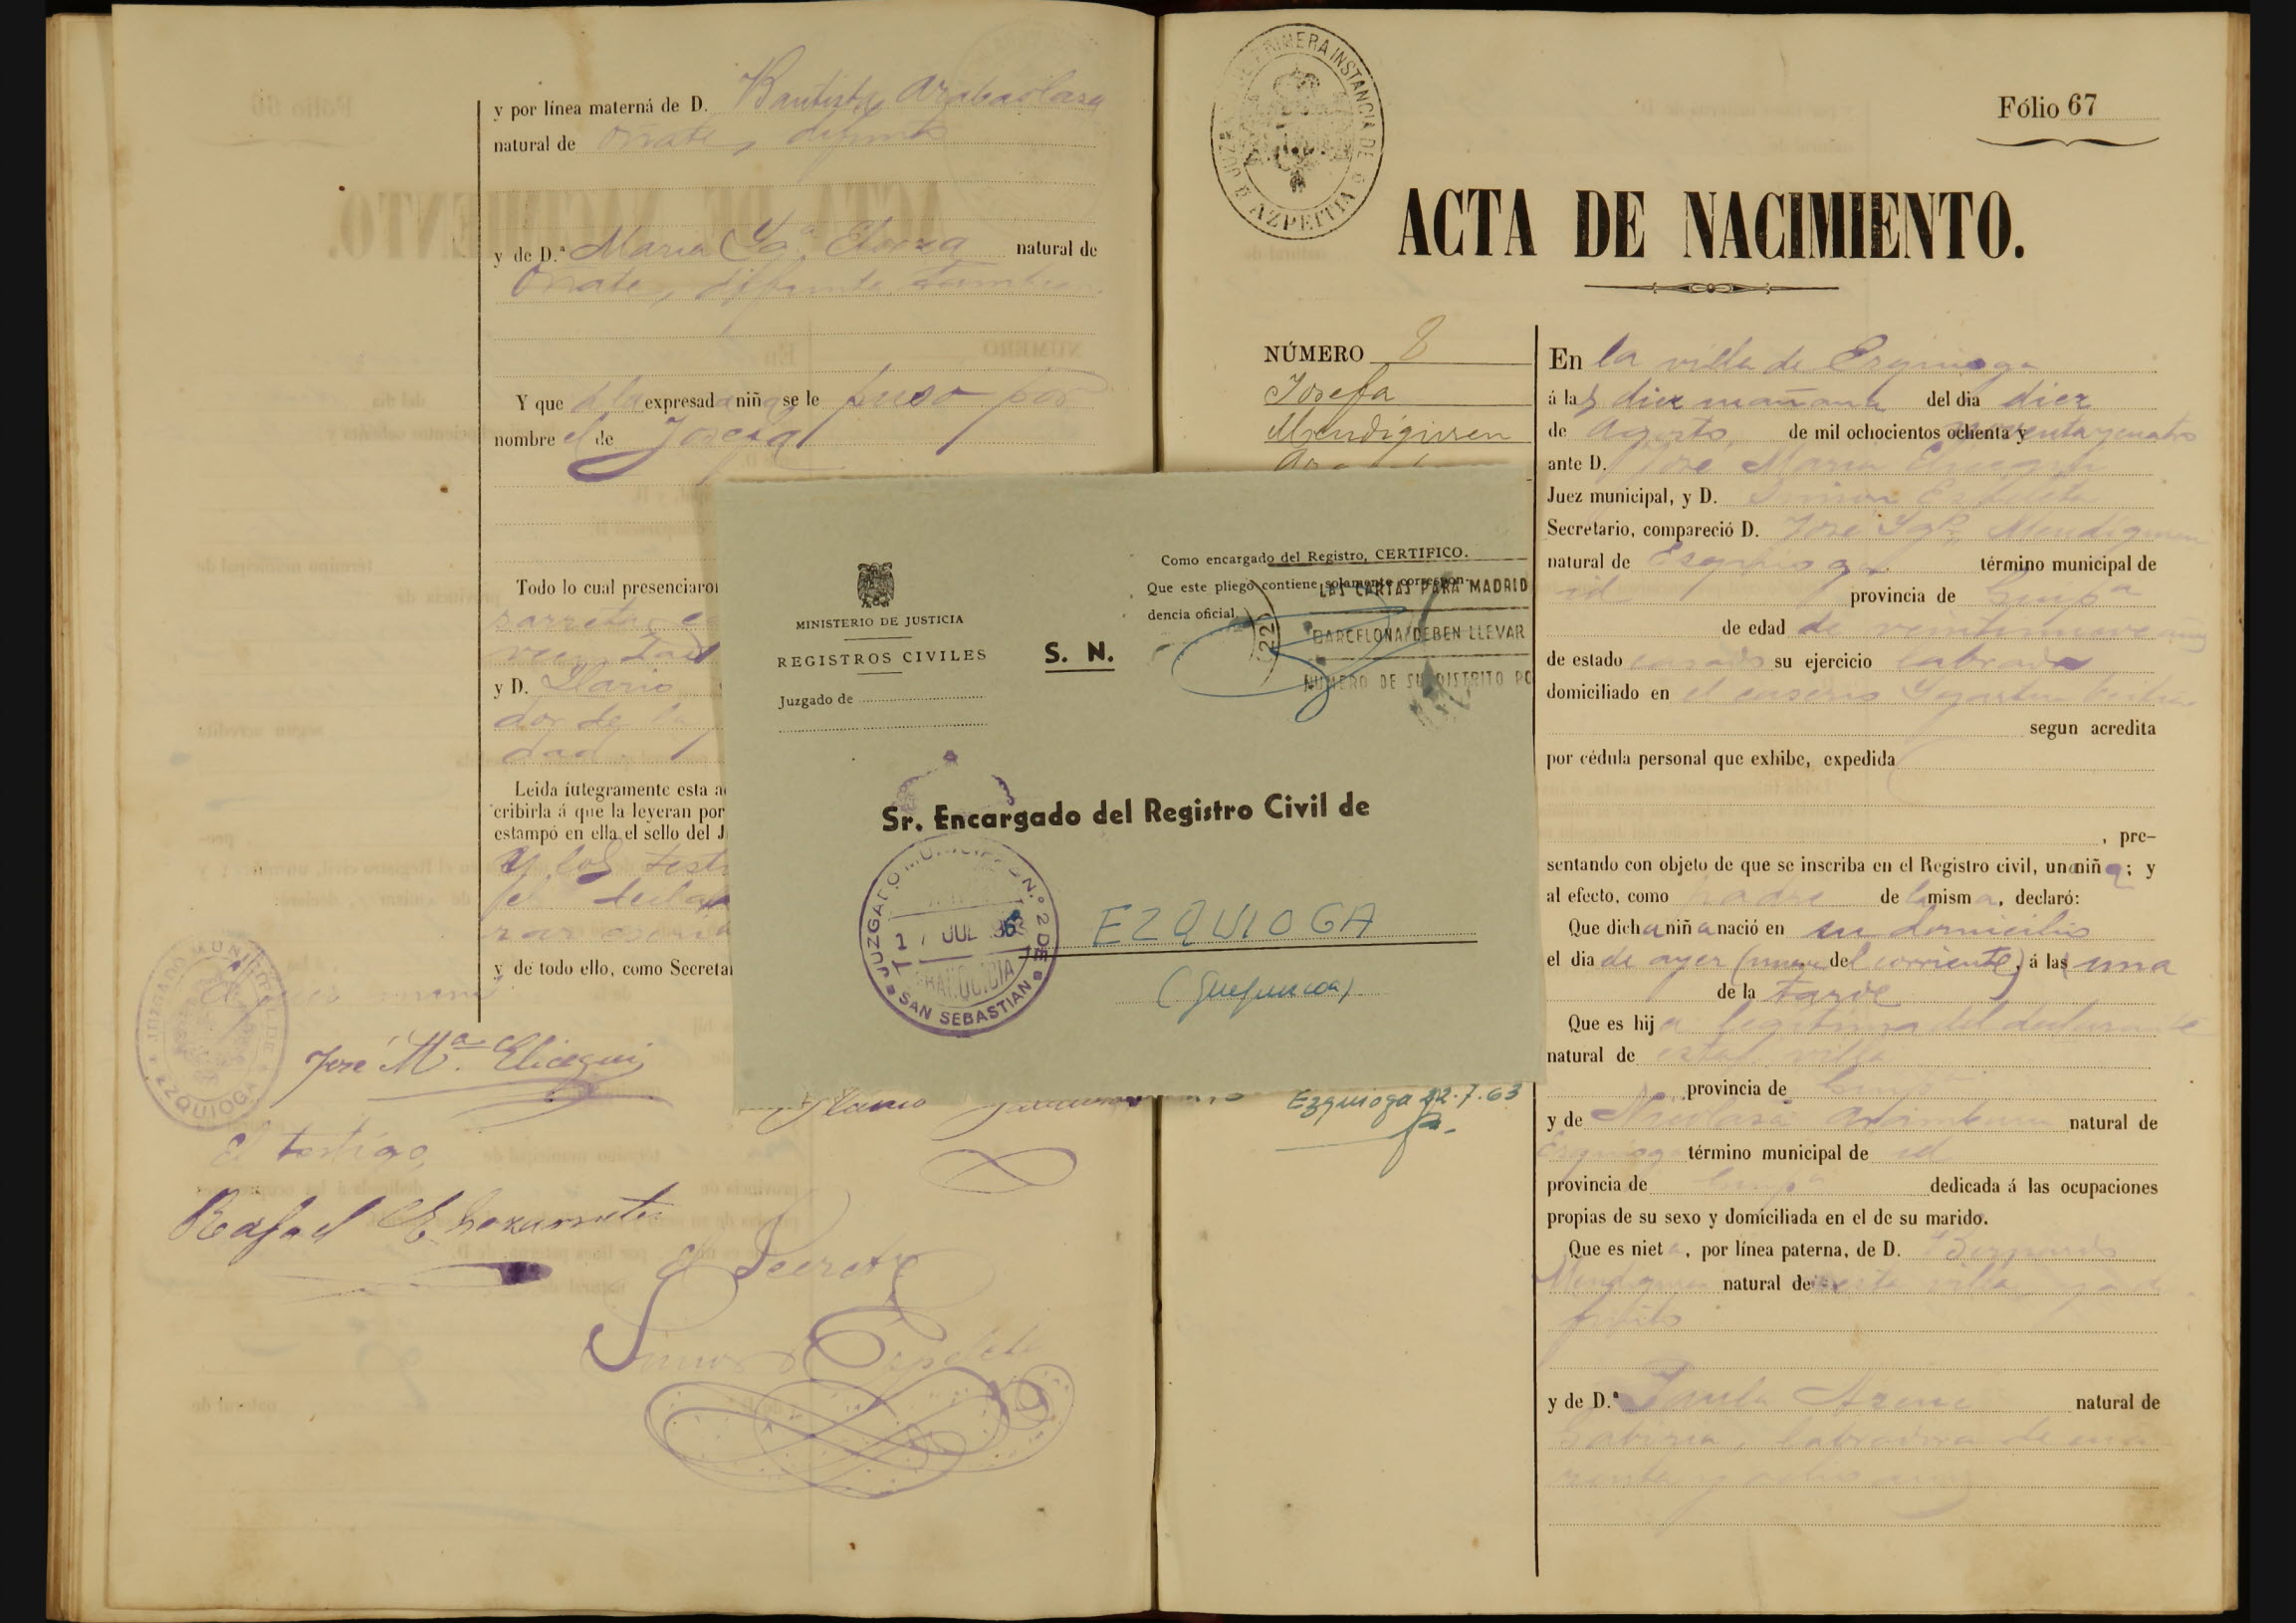 y por línea materná de D. Bautista Arabaolasa
natural de Oñate, difunto
y de D.ª Maria Ygª. Elorza natural de
Oñate, difunta tambien
Y que á la expresada niña se le puso por
nombre el de Josefa
Todo lo cual presenciaron
y D. Ilario
dor de la
dad.
Leida íntegramente esta a
cribirla á que la leyeran por
estampó en ella el sello del J
y los testi
y de todo ello, como Secretar
JUZGADO MUNICIPAL DE
EZQUIOGA
José Mª. Elicegui
El testigo,
Rafael
Ilario
El Secretº
Simon Espeleta
MINISTERIO DE JUSTICIA
REGISTROS CIVILES
Juzgado de
S. N.
Como encargado del Registro, CERTIFICO.
Que este pliego contiene solamente correspon-
dencia oficial.
22
LAS CARTAS PARA MADRID
BARCELONA DEBEN LLEVAR
NUMERO DE SU DISTRITO PO
Sr. Encargado del Registro Civil de
JUZGADO MUNICIPAL N.º 2 DE
SAN SEBASTIAN
JUL
FRANQUICIA
EZQUIOGA
(Guipuzcoa)
JUZGADO DE PRIMERA INSTANCIA DE
AZPEITIA
Fólio 67
ACTA DE NACIMIENTO.
NÚMERO 8
Josefa
Mendiguren
Ezquioga 22.7.63
En la villa de Ezquioga
á las diez mañana del dia diez
de Agosto, de mil ochocientos ochenta y noventa y cuatro
ante D. José Maria Elicegui
Juez municipal, y D. Simon Espeleta
Secretario, compareció D. José Ygº. Mendiguren
natural de Ezquioga término municipal de
id provincia de Guipª
de edad de veintinueve años
de estado casado su ejercicio labrador
domiciliado en el caserio
segun acredita
por cédula personal que exhibe, expedida
, pre-
sentando con objeto de que se inscriba en el Registro civil, una niña; y
al efecto, como padre de la misma, declaró:
Que dicha niña nació en su domicilio
el dia de ayer (nueve del corriente), á las una
de la tarde
Que es hija legitima del declarante
natural de esta villa
provincia de Guipª
y de Nicolasa natural de
Ezquioga término municipal de id
provincia de Guipª dedicada á las ocupaciones
propias de su sexo y domiciliada en el de su marido.
Que es nieta, por línea paterna, de D. Bernardo
Mendiguren natural de esta villa, ya di
funto
y de D.ª Paula natural de
Gabiria, labradora de